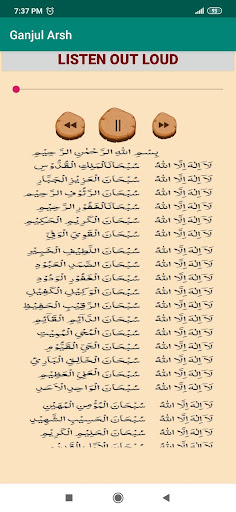 7:37 PM
Ganjul Arsh
LISTEN OUT LOUD
بِسْمِ اللهِ الرَّحْمٰنِ الرَّحِيْمِ
لَآ اِلٰهَ اِلَّا اللهُ سُبْحَانَ الْمَلِكِ الْقُدُّوْسِ
لَآ اِلٰهَ اِلَّا اللهُ سُبْحَانَ الْعَزِيْزِ الْجَبَّارِ
لَآ اِلٰهَ اِلَّا اللهُ سُبْحَانَ الرَّئُوْفِ الرَّحِيْمِ
لَآ اِلٰهَ اِلَّا اللهُ سُبْحَانَ الْغَفُوْرِ الرَّحِيْمِ
لَآ اِلٰهَ اِلَّا اللهُ سُبْحَانَ الْكَرِيْمِ الْحَكِيْمِ
لَآ اِلٰهَ اِلَّا اللهُ سُبْحَانَ الْقَوِيِّ الْوَفِيِّ
لَآ اِلٰهَ اِلَّا اللهُ سُبْحَانَ اللَّطِيْفِ الْخَبِيْرِ
لَآ اِلٰهَ اِلَّا اللهُ سُبْحَانَ الصَّمَدِ الْمَعْبُوْدِ
لَآ اِلٰهَ اِلَّا اللهُ سُبْحَانَ الْغَفُوْرِ الْوَدُوْدِ
لَآ اِلٰهَ اِلَّا اللهُ سُبْحَانَ الْوَكِيْلِ الْكَفِيْلِ
لَآ اِلٰهَ اِلَّا اللهُ سُبْحَانَ الرَّقِيْبِ الْحَفِيْظِ
لَآ اِلٰهَ اِلَّا اللهُ سُبْحَانَ الدَّآئِمِ الْقَآئِمِ
لَآ اِلٰهَ اِلَّا اللهُ سُبْحَانَ الْمُحْيِ الْمُمِيْتِ
لَآ اِلٰهَ اِلَّا اللهُ سُبْحَانَ الْحَيِّ الْقَيُّوْمِ
لَآ اِلٰهَ اِلَّا اللهُ سُبْحَانَ الْخَالِقِ الْبَارِئِ
لَآ اِلٰهَ اِلَّا اللهُ سُبْحَانَ الْعَلِيِّ الْعَظِيْمِ
لَآ اِلٰهَ اِلَّا اللهُ سُبْحَانَ الْوَاحِدِ الْاَحَدِ
لَآ اِلٰهَ اِلَّا اللهُ سُبْحَانَ الْمُؤْمِنِ الْمُهَيْمِنِ
لَآ اِلٰهَ اِلَّا اللهُ سُبْحَانَ الْحَسِيْبِ الشَّهِيْدِ
لَآ اِلٰهَ اِلَّا اللهُ سُبْحَانَ الْحَلِيْمِ الْكَرِيْمِ